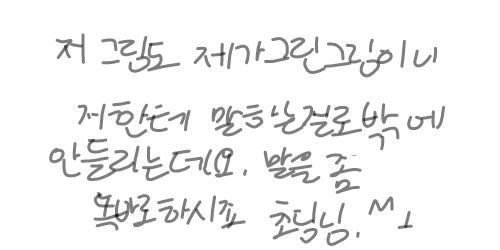 저 그림도 제가그린그림이니
저한테 말하는걸로밖에
안들리는데요. 말을 좀
똑바로하시죠 초딩님.